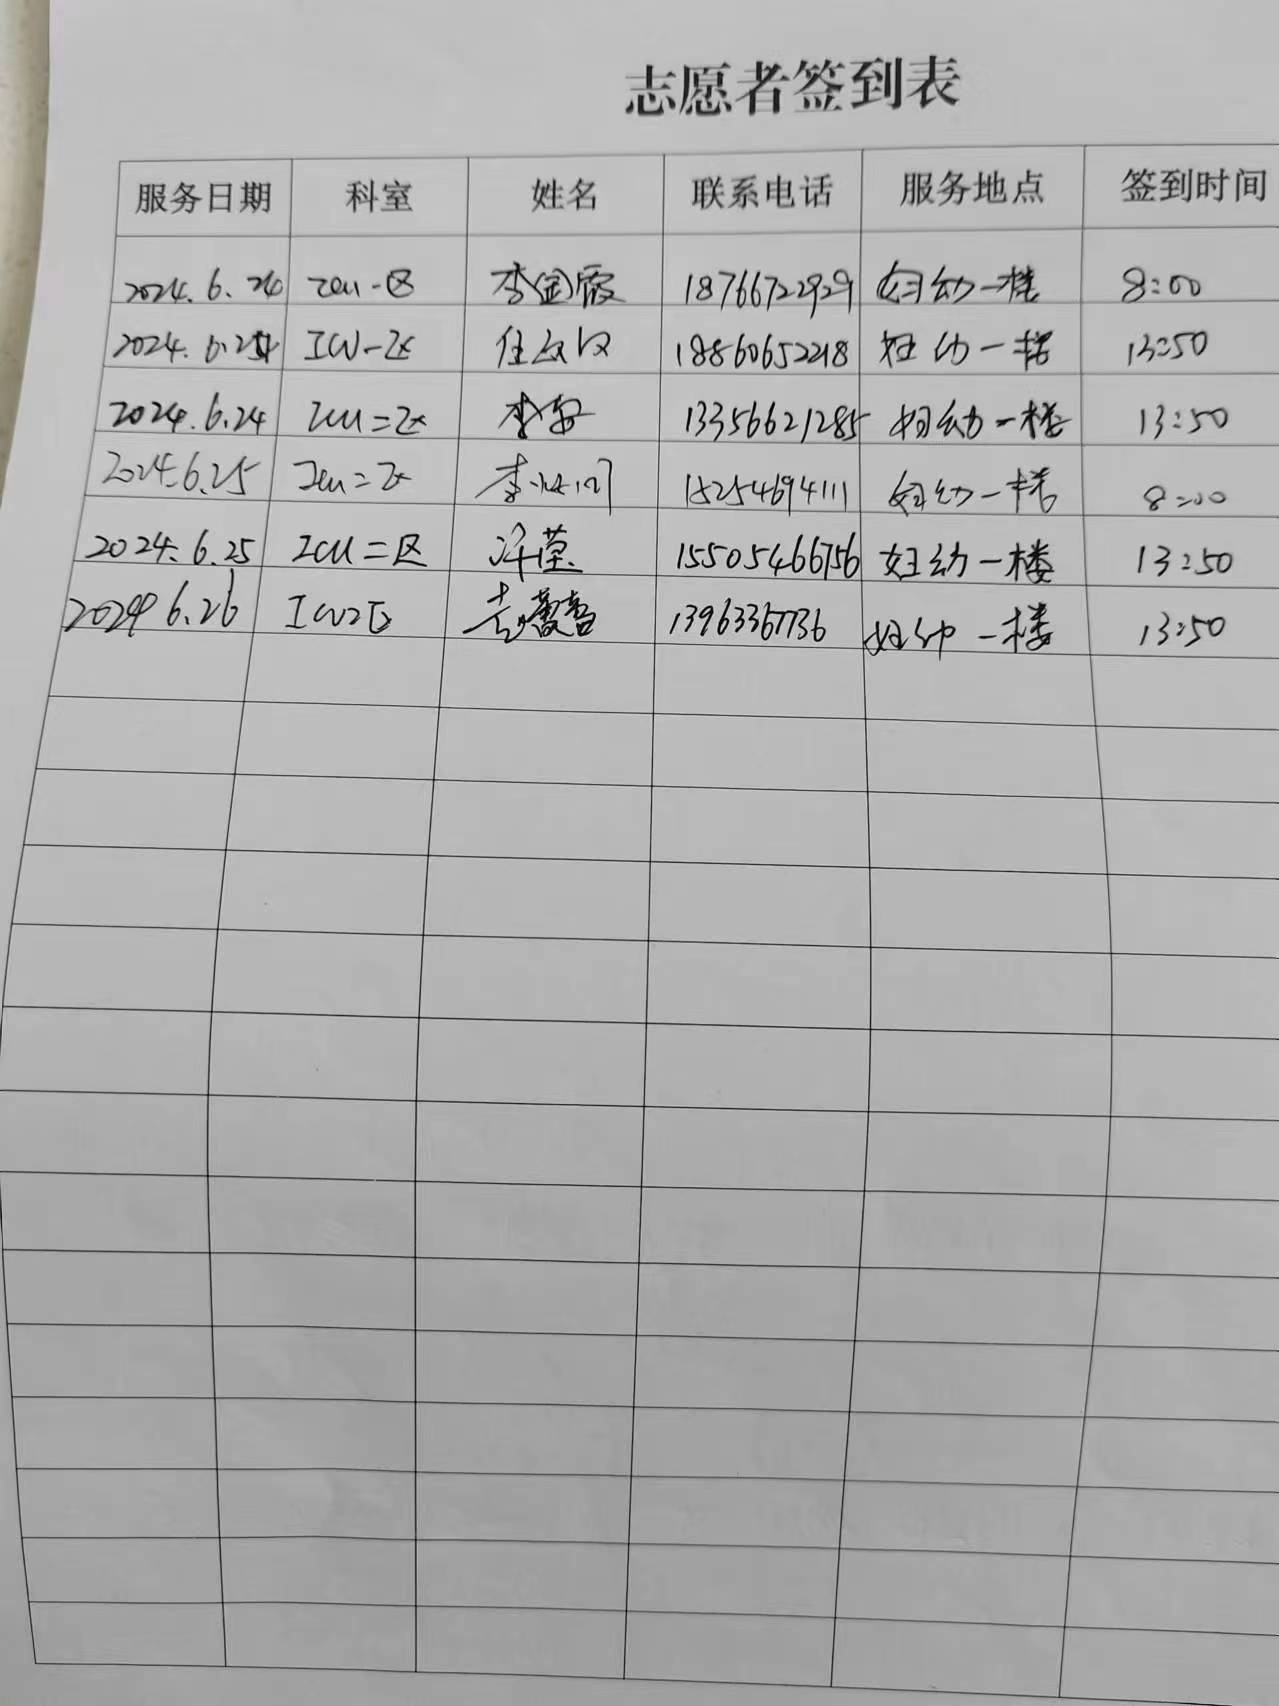 志愿者签到表
服务日期 科室 姓名 联系电话 服务地点 签到时间
2024.6.24 ICU一区 李金霞 18766722929 妇幼一楼 8:00
2024.6.24 ICU一区 18860652218 妇幼一楼 13:50
2024.6.24 ICU二区 李 13356621285 妇幼一楼 13:50
2024.6.25 ICU二区 李 15254694111 妇幼一楼 8:00
2024.6.25 ICU二区 15505466756 妇幼一楼 13:50
2024 6.26 ICU2区 13963367736 妇幼一楼 13:50